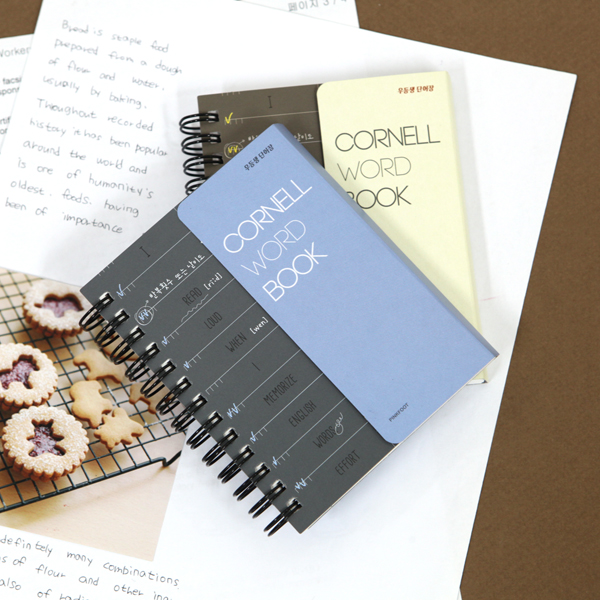 페이지 3 /
Bread is staple food
prepared from a dough
of flour and water,
usually by baking.
Throughout recorded
history it has been popular
around the world and
is one of humanity's
oldest foods, having
been of importance
우등생 단어장
CORNELL
WORD
BOOK
우등생 단어장
CORNELL
WORD
BOOK
PINKFOOT
I
I
READ [ri:d]
LOUD
WHEN [wen]
I
MEMORIZE
ENGLISH
WORDS
EFFORT
definitely many combinations
of flour and other
also of